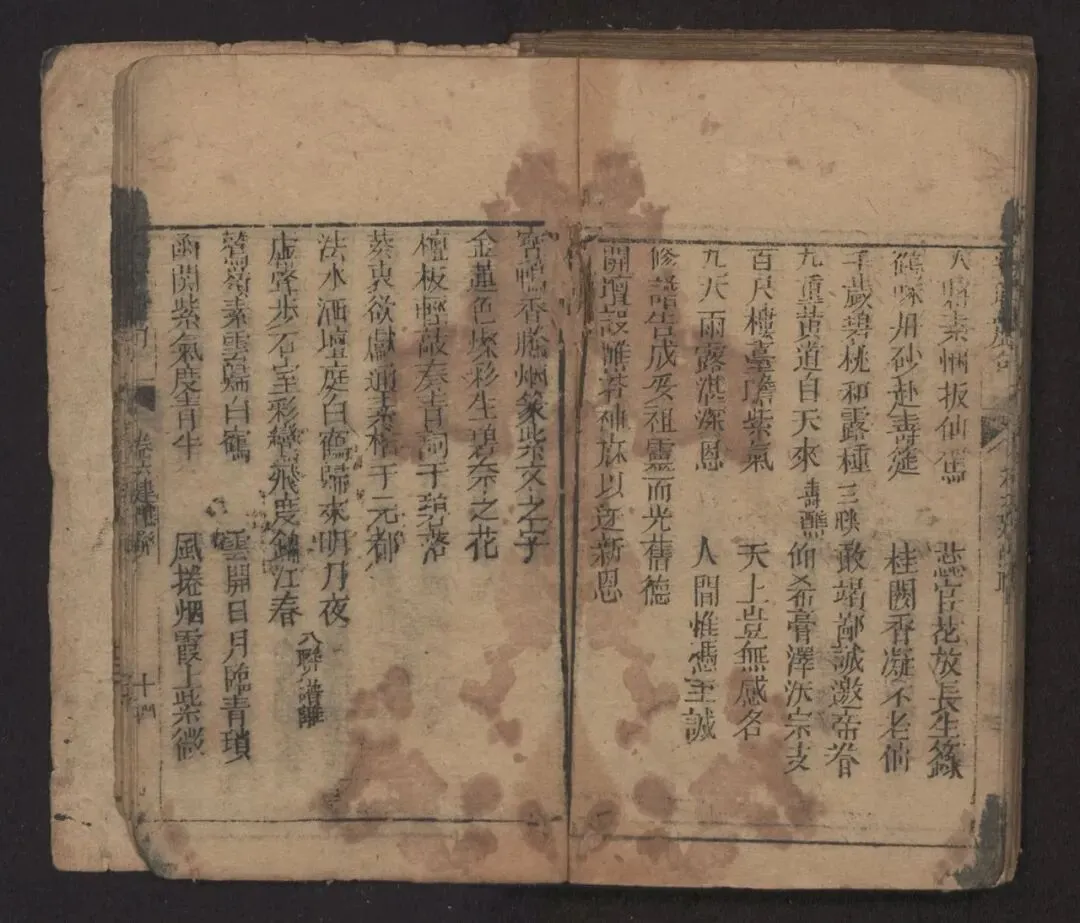 八璈奏愜板仙篤 蕊宮花放長生籙
鶴啄丹砂赴壽筵 桂闕香凝不老仙
千歲碧桃和露種 三殿敢竭鄙誠邀帝眷
九重黃道自天來 壽醮 仰希膏澤沃宗支
百尺樓臺瞻紫氣 天上豈無感名
九天雨露湛深恩 人間惟憑至誠
修譜告成妥祖靈而光舊德
開壇設醮荅神庥以迓新恩
寶鴨香騰烟篆紫文之字
金蓮色燦彩生碧奈之花
檀板輕敲奏青詞于碧落
葵衷欲獻通素悃于元都
法水洒壇庭白鶴歸來明月夜
虛聲步石室彩鸞飛度錦江春 八聯譜醮
鶯銜素雲歸白鶴 雲開日月臨青瑣
函開紫氣度青牛 風捲烟霞上紫微
卷六建醮 十四